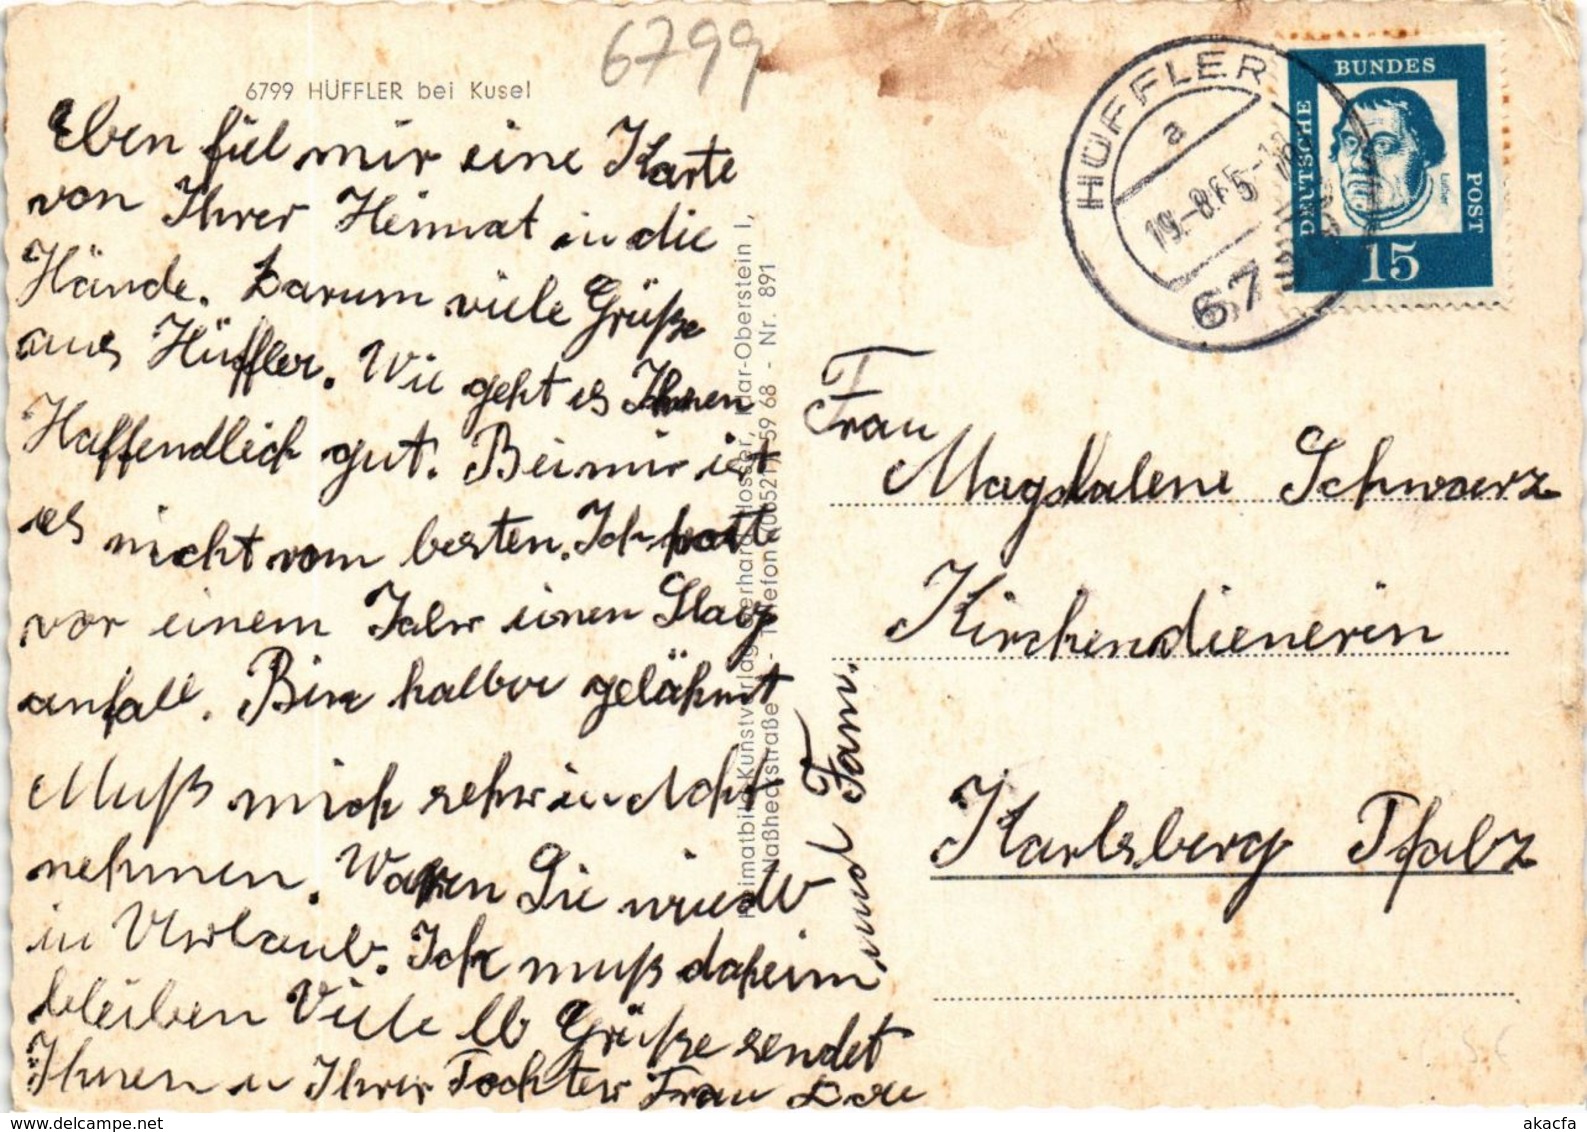 6799
6799 HÜFFLER bei Kusel
Eben fiel mir eine Karte
von Ihrer Heimat in die
Hände. Darum viele Grüße
aus Hüffler. Wie geht es Ihnen
Haffendlich gut. Bei mir ist
es nicht vom besten. Ich hatte
vor einem Jahr einen Schlag
anfall. Bin halber gelähmt
Muß mich sehr in Acht
nehmen. Waren Sie wieder
in Urlaub. Ich muß daheim
bleiben Viele lb Grüße sendet
Ihnen u Ihrer Tochter Frau
und Fam.
Heimatbild-Kunstverlag Gerhard Glosser, Idar-Oberstein I,
Naßheckstraße - Telefon (06521) 59 68 - Nr. 891
HÜFFLER
a
19.-8.65-18
67
DEUTSCHE
BUNDES
POST
Luther
15
Frau
Magdalene Schwarz
Kirchendienerin
Karlsberg Pfalz
akacfa
www.delcampe.net